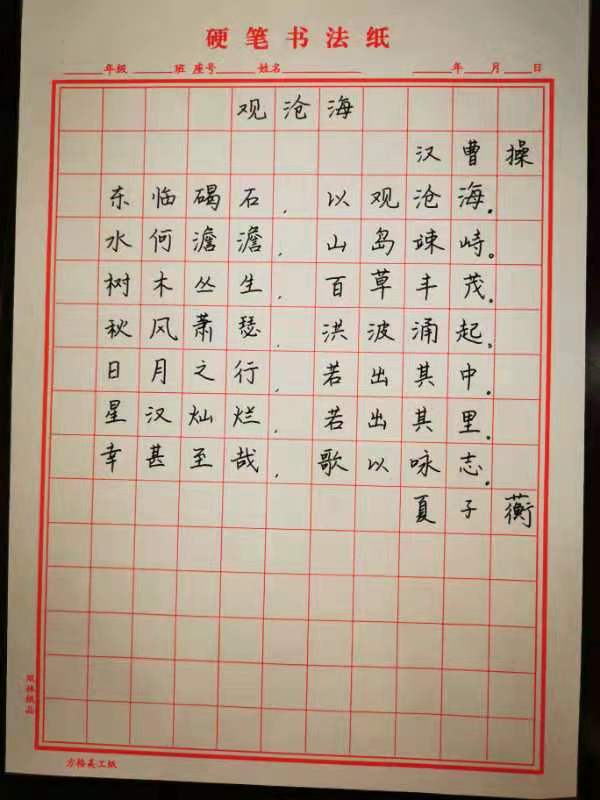 硬笔书法纸
年级 班 座号 姓名 年 月 日
观沧海
汉 曹操
东临碣石，以观沧海。
水何澹澹，山岛竦峙。
树木丛生，百草丰茂。
秋风萧瑟，洪波涌起。
日月之行，若出其中。
星汉灿烂，若出其里。
幸甚至哉，歌以咏志。
夏子蘅
双林纸品
方格美工纸